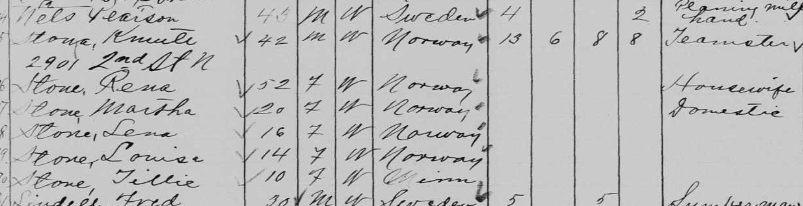 Nels Pearson 45 M W Sweden 4 2 Planing mill hand
Stone, Knute 42 M W Norway 13 6 8 8 Teamster
2901 2nd St N
Stone, Rena 52 F W Norway Housewife
Stone, Martha 20 F W Norway Domestic
Stone, Lena 16 F W Norway
Stone, Louise 14 F W Norway
Stone, Tillie 10 F W Minn
Lindell, Fred 30 M W Sweden 5 5